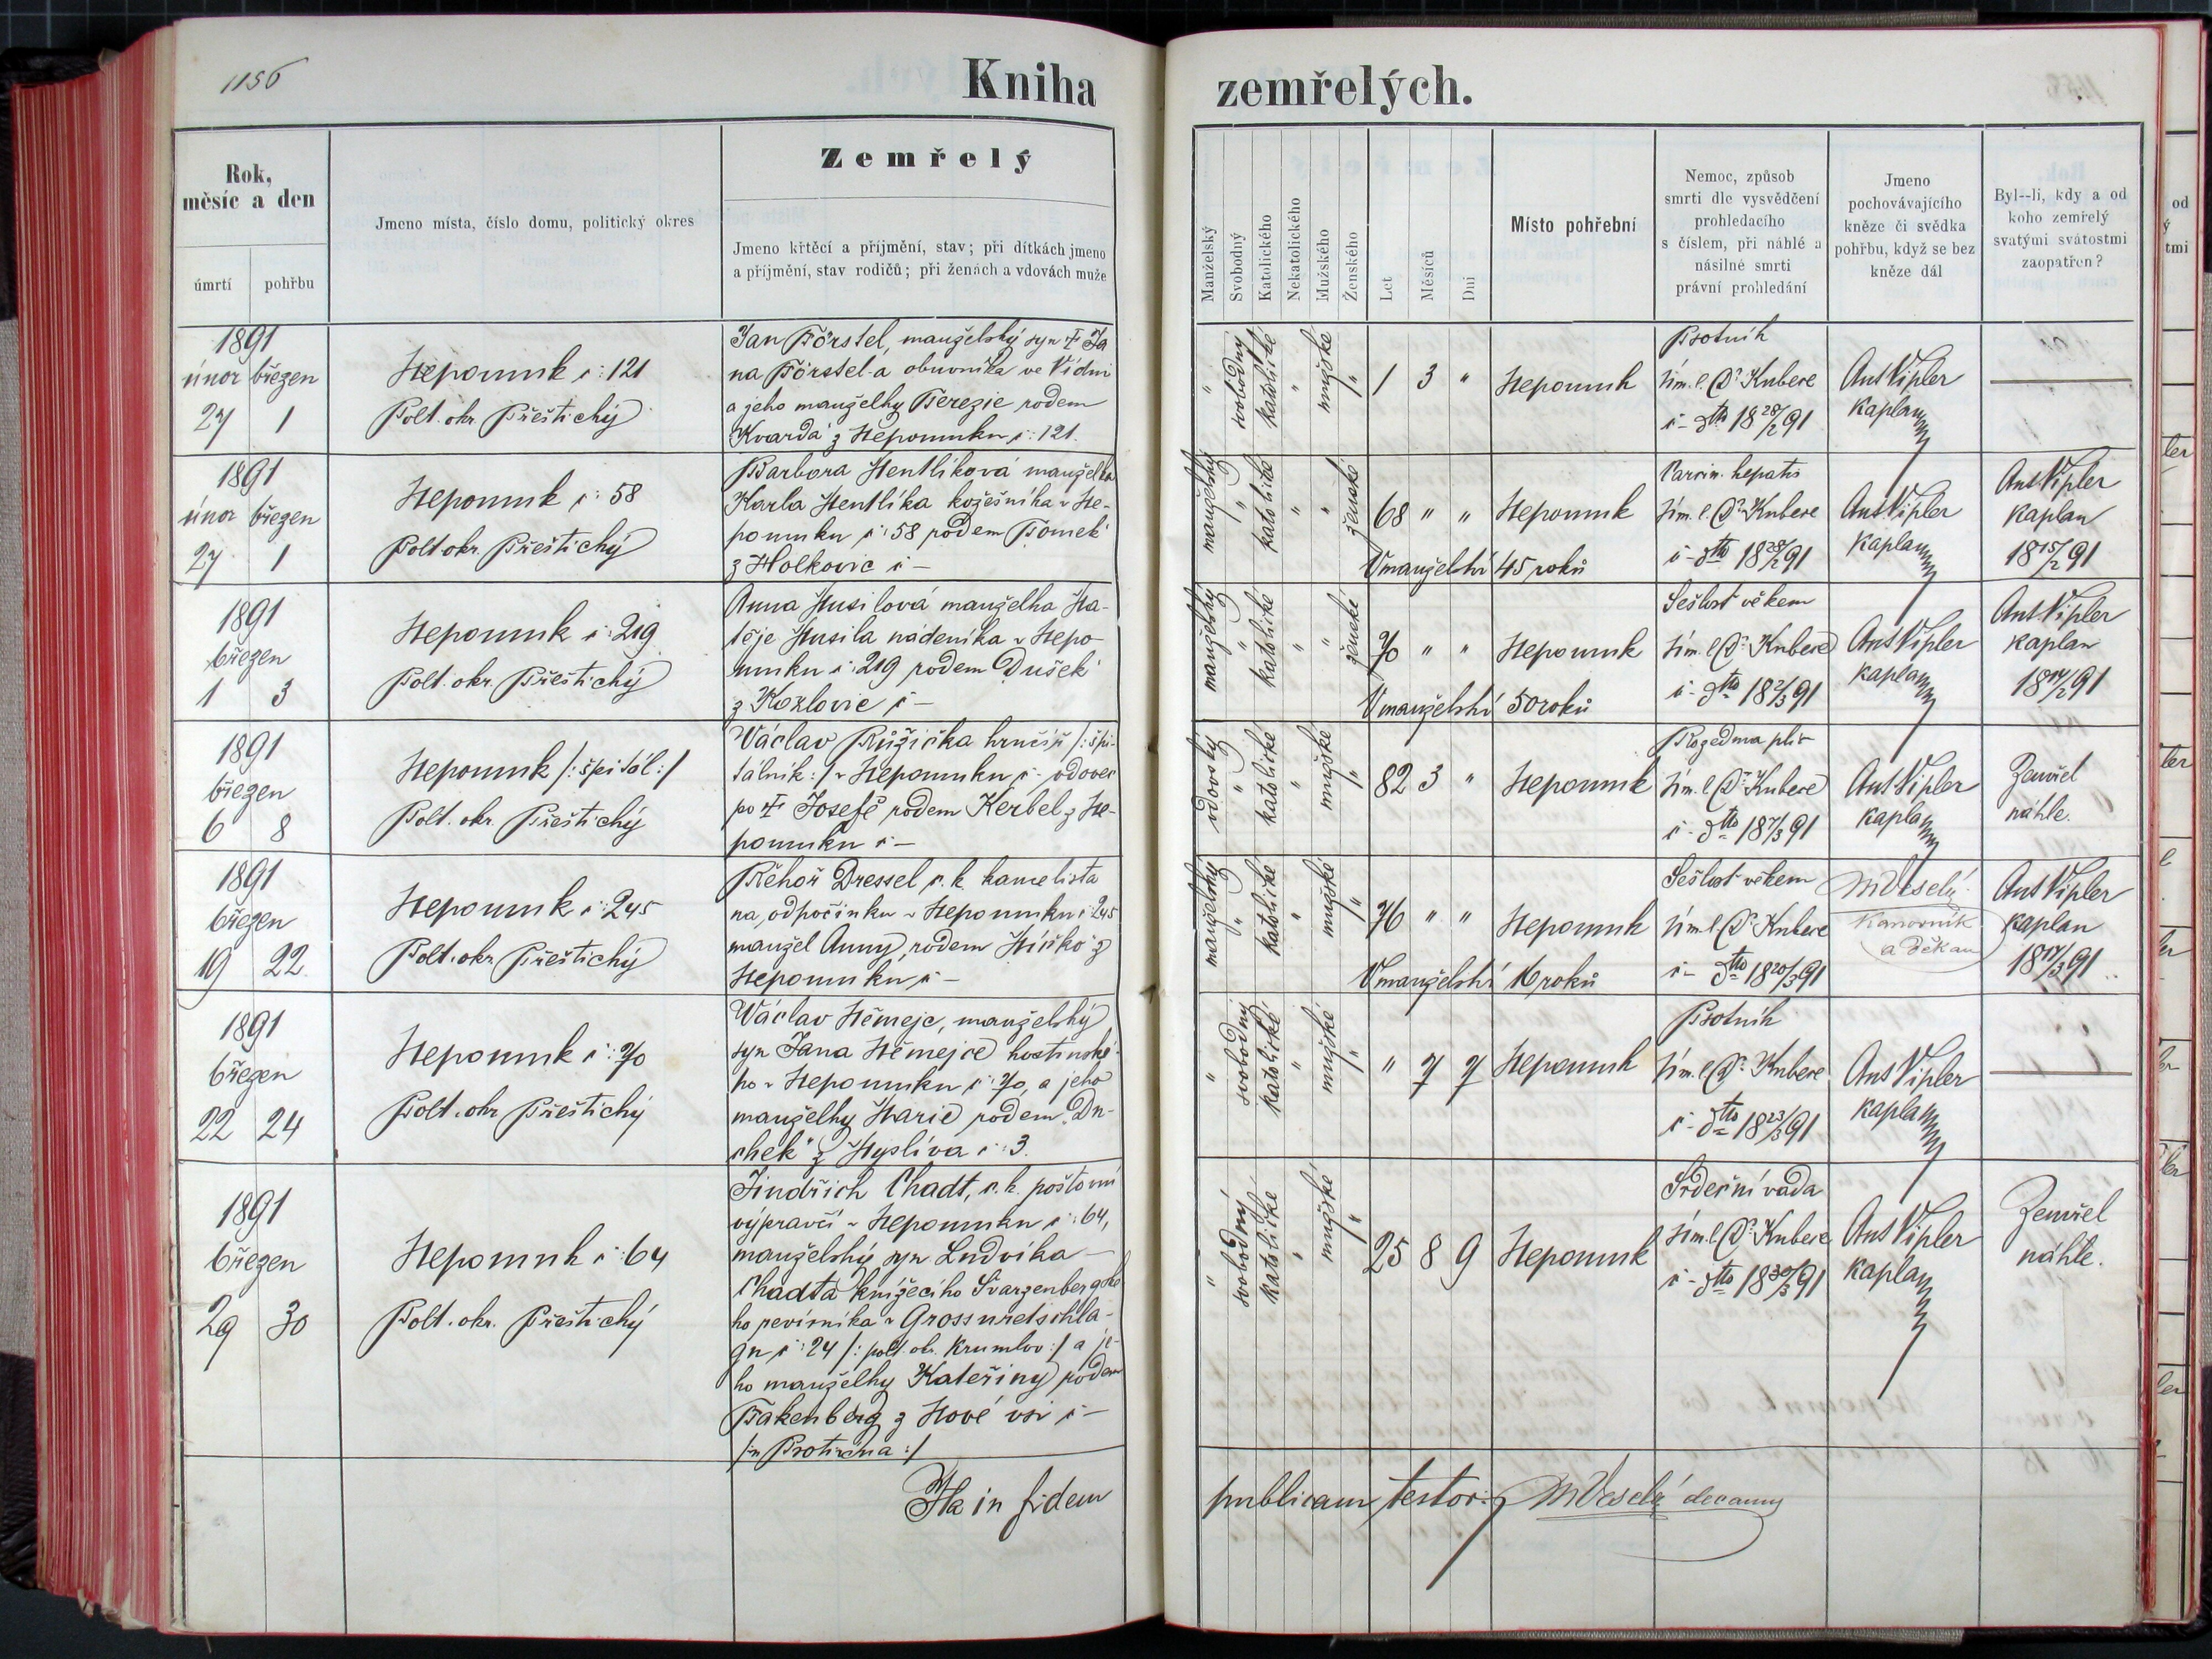 1156
Kniha zemřelých.
Rok,
měsíc a den
úmrtí
pohřbu
Jmeno místa, číslo domu, politický okres
Zemřelý
Jmeno křtěcí a příjmění, stav; při dítkách jmeno
a příjmění, stav rodičů; při ženách a vdovách muže
Manželský
Svobodný
Katolického
Nekatolického
Mužského
Ženského
Let
Měsíců
Dní
Místo pohřební
Nemoc, způsob
smrti dle vysvědčení
prohledacího
s číslem, při náhlé a
násilné smrti
právní prohledání
Jmeno
pochovávajícího
kněze či svědka
pohřbu, když se bez
kněze dál
Byl--li, kdy a od
koho zemřelý
svatými svátostmi
zaopatřen?
1891
únor březen
27 1
Nepomuk č: 121
Polt. okr. Přeštický
Jan Förstel, manželský syn † Ja
na Förstel-a obuvníka ve Vídni
a jeho manželky Terezie rodem
Kvarda z Nepomuku č: 121.
" svobodný katolické " mužské "
1 3 "
Nepomuk
Psotník
lím. l. Dr. Kubeše
č - dtto 18 28/2 91
Ant Vipler
kaplan
1891
únor březen
27 1
Nepomuk č: 58
Polt okr. Přeštický
Barbora Hentlíková manželka
Karla Hentlíka kožešníka v Ne-
pomuku č: 58 rodem Tomek
z Holkovic č -
manželský " katolické " " ženské
68 " "
Nepomuk
V manželství 45 roků
Carcin. hepatis
lím. l. Dr. Kubeše
č - dtto 18 28/2 91
Ant Vipler
kaplan
Ant Vipler
kaplan
18 15/2 91
1891
březen
1 3
Nepomuk č: 219
Polt. okr. Přeštický
Anna Musilová manželka Ma-
těje Musila nádeníka v Nepo-
muku č: 219 rodem Dušek
z Kozlovic č -
manželský " katolické " " ženské
70 " "
Nepomuk
V manželství 50 roků
Sešlosť věkem
lím. l. Dr. Kubeše
č - dtto 18 2/3 91
Ant Vipler
kaplan
Ant Vipler
kaplan
18 14/2 91
1891
březen
6 8
Nepomuk /: špitál :/
Polt. okr. Přeštický
Václav Růžička hrnčíř /: špi-
tálník :/ v Nepomuku č - vdovec
po † Josefě rodem Kerbel z Ne-
pomuku č -
vdovský " katolické " mužské "
82 3 "
Nepomuk
Rozedma plic
lím. l. Dr. Kubeše
č - dtto 18 7/3 91
Ant Vipler
kaplan
Zemřel
náhle.
1891
březen
19 22.
Nepomuk č: 245
Polt. okr. Přeštický
Řehoř Dressel c. k. kancelista
na odpočinku v Nepomuku č: 245
manžel Anny, rodem Míčko z
Nepomuku č -
manželský " katolické " mužské "
76 " "
Nepomuk
V manželství 16 roků
Sešlosť věkem
lím. l. Dr. Kubeše
č - dtto 18 20/3 91
M Veselý
Kanovník
a děkan
Ant Vipler
kaplan
18 17/3 91
1891
březen
22 24
Nepomuk č: 70
Polt. okr. Přeštický
Václav Němejc, manželský
syn Jana Němejce hostinské-
ho v Nepomuku č: 70, a jeho
manželky Marie rodem Du-
chek z Myslíva č: 3.
" svobodný katolické " mužské "
" 7 7
Nepomuk
Psotník
lím. l. Dr. Kubeše
č - dtto 18 23/3 91
Ant Vipler
kaplan
1891
březen
29 30
Nepomuk č: 64
Polt. okr. Přeštický
Jindřich Chadt, c. k. poštovní
výpravčí v Nepomuku č: 64,
manželský syn Ludvíka
Chadta knížecího Švarzenbergské
ho revírníka v Grossuretschla-
gu č: 24 /: polt. ok. Krumlov :/ a je-
ho manželky Kateřiny rodem
Fakenberg z Nové vsi č -
/:u Protivína :/
" svobodný katolické " mužské "
25 8 9
Nepomuk
Srdeční vada
lím. l. Dr. Kubeše
č - dtto 18 30/3 91
Ant Vipler
kaplan
Zemřel
náhle.
Ita in fidem publicam testor: M Veselý decanus